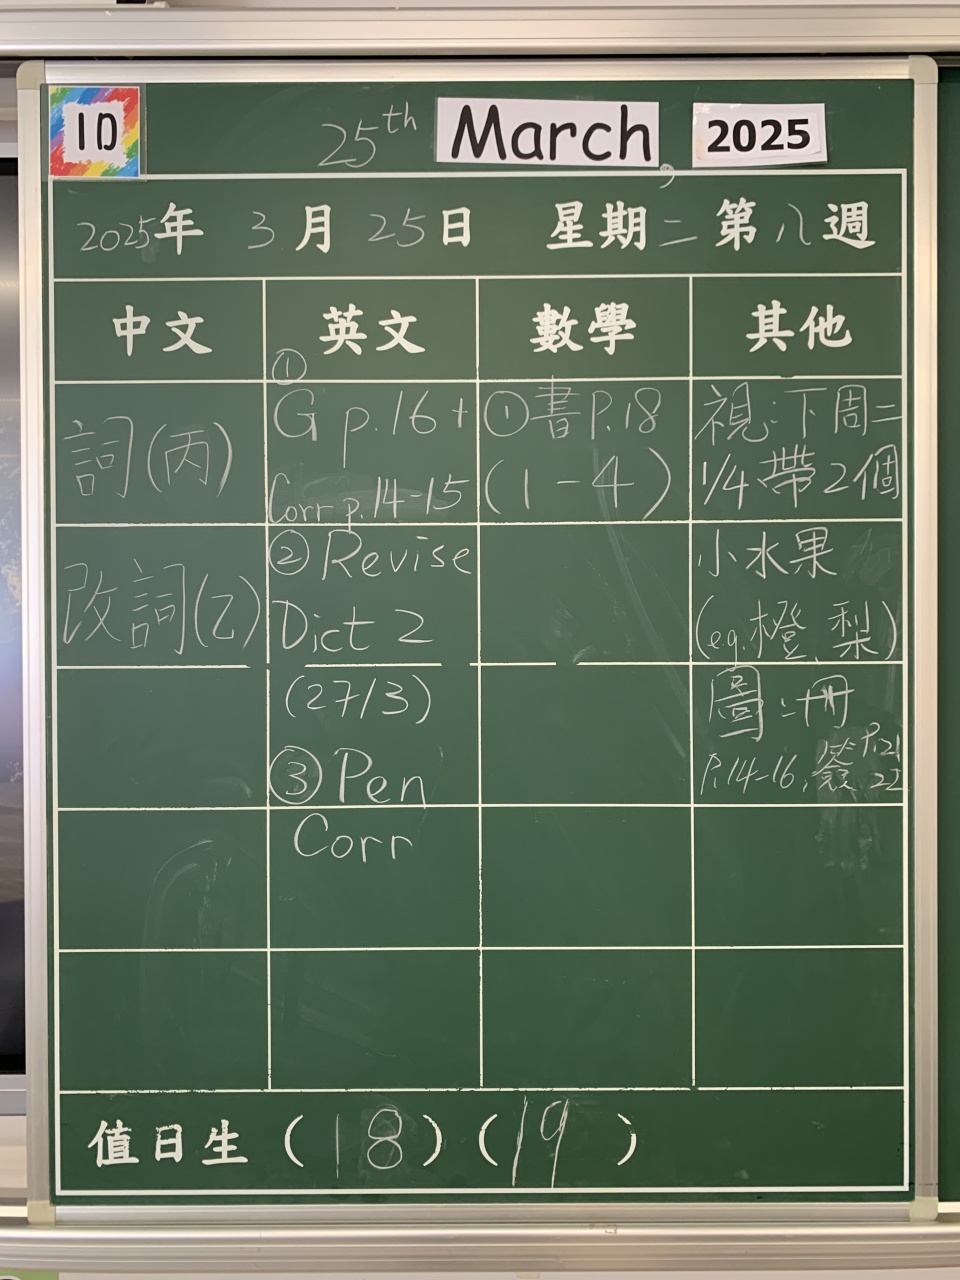 1D
25th March, 2025
2025年 3月 25日 星期二 第八週
中文 英文 數學 其他
詞(丙)
改詞(乙)
① G p.16 +
Corr p.14-15
② Revise
Dict 2
(27/3)
③ Pen
Corr
① 書P.18
(1-4)
視:下周二
1/4 帶2個
小水果
(e.g.橙、梨)
圖:冊
P.14-16,簽P.21
22
值日生 (18) (19)